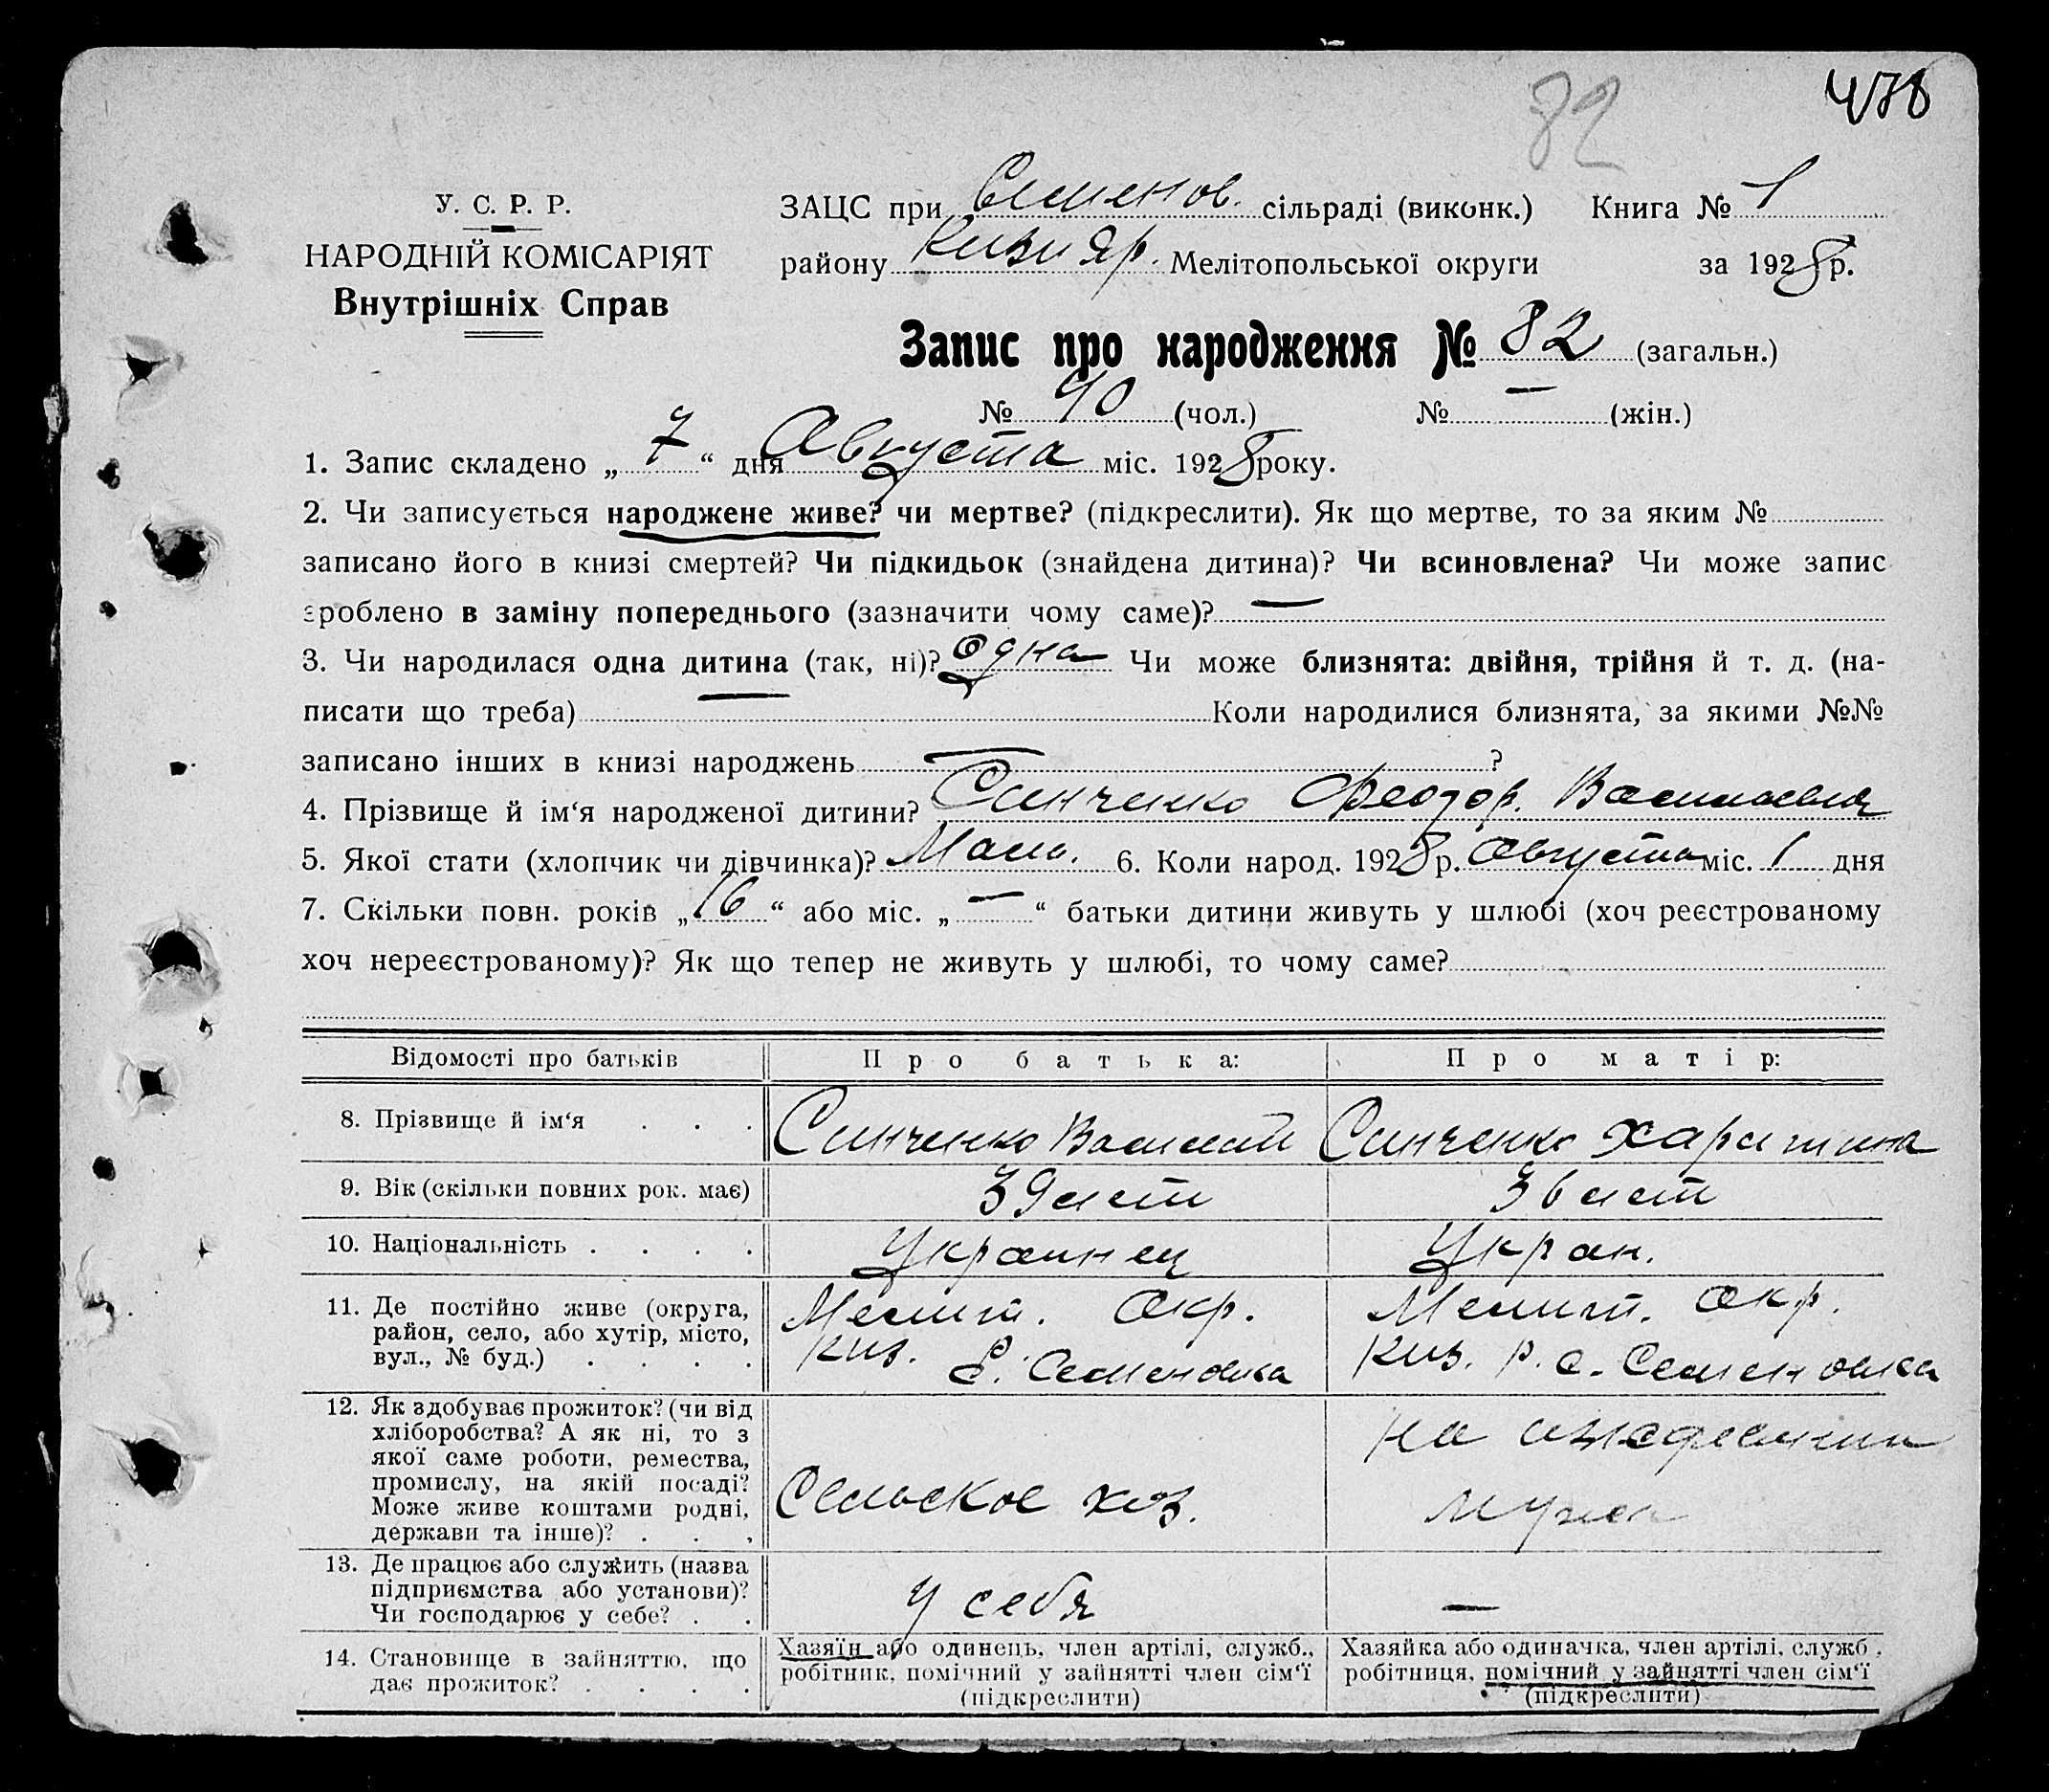 478
82
У. С. Р. Р.
НАРОДНІЙ КОМІСАРІЯТ
Внутрішніх Справ
ЗАЦС при Семенов. сільраді (виконк.) Книга № 1
району Кизияр. Мелітопольської округи за 1928 р.
Запис про народження № 82 (загальн.)
№ 40 (чол.) № — (жін.)
1. Запис складено „ 7 “ дня Августа міс. 1928 року.
2. Чи записується народжене живе? чи мертве? (підкреслити). Як що мертве, то за яким №
записано його в книзі смертей? Чи підкидьок (знайдена дитина)? Чи всиновлена? Чи може запис
зроблено в заміну попереднього (зазначити чому саме)? —
3. Чи народилася одна дитина (так, ні)? Одна Чи може близнята: двійня, трійня й т. д. (на-
писати що треба) — Коли народилися близнята, за якими №№
записано інших в книзі народжень — ?
4. Прізвище й ім‘я народженої дитини? Синченко Феодор. Васильевич
5. Якої стати (хлопчик чи дівчинка)? Мальч. 6. Коли народ. 1928 р. Августа міс. 1 дня
7. Скільки повн. років „ 16 “ або міс. „ — “ батьки дитини живуть у шлюбі (хоч реєстрованому
хоч нереєстрованому)? Як що тепер не живуть у шлюбі, то чому саме?
Відомості про батьків Про батька: Про матір:
8. Прізвище й ім‘я . . . Синченко Василий Синченко Харитина
9. Вік (скільки повних рок. має) 39 лет 36 лет
10. Національність . . . . Украинец Укран.
11. Де постійно живе (округа, район, село, або хутір, місто, вул., № буд.) . . . .
Мелит. Окр.
Киз. С. Семеновка
Мелит. Окр.
Киз. р. с. Семеновка
12. Як здобуває прожиток? (чи від хліборобства? А як ні, то з якої саме роботи, ремества, промислу, на якій посаді? Може живе коштами родні, держави та інше)? . . .
Сельское хоз.
На иждевении
мужа
13. Де працює або служить (назва підприємства або установи)? Чи господарює у себе? . .
у себя
—
14. Становище в зайняттю, що дає прожиток? . . . .
Хазяїн або одинець, член артілі, служб.,
робітник, помічний у зайнятті член сім‘ї
(підкреслити)
Хазяйка або одиначка, член артілі, служб.,
робітниця, помічний у зайнятті член сім‘ї
(підкреслити)